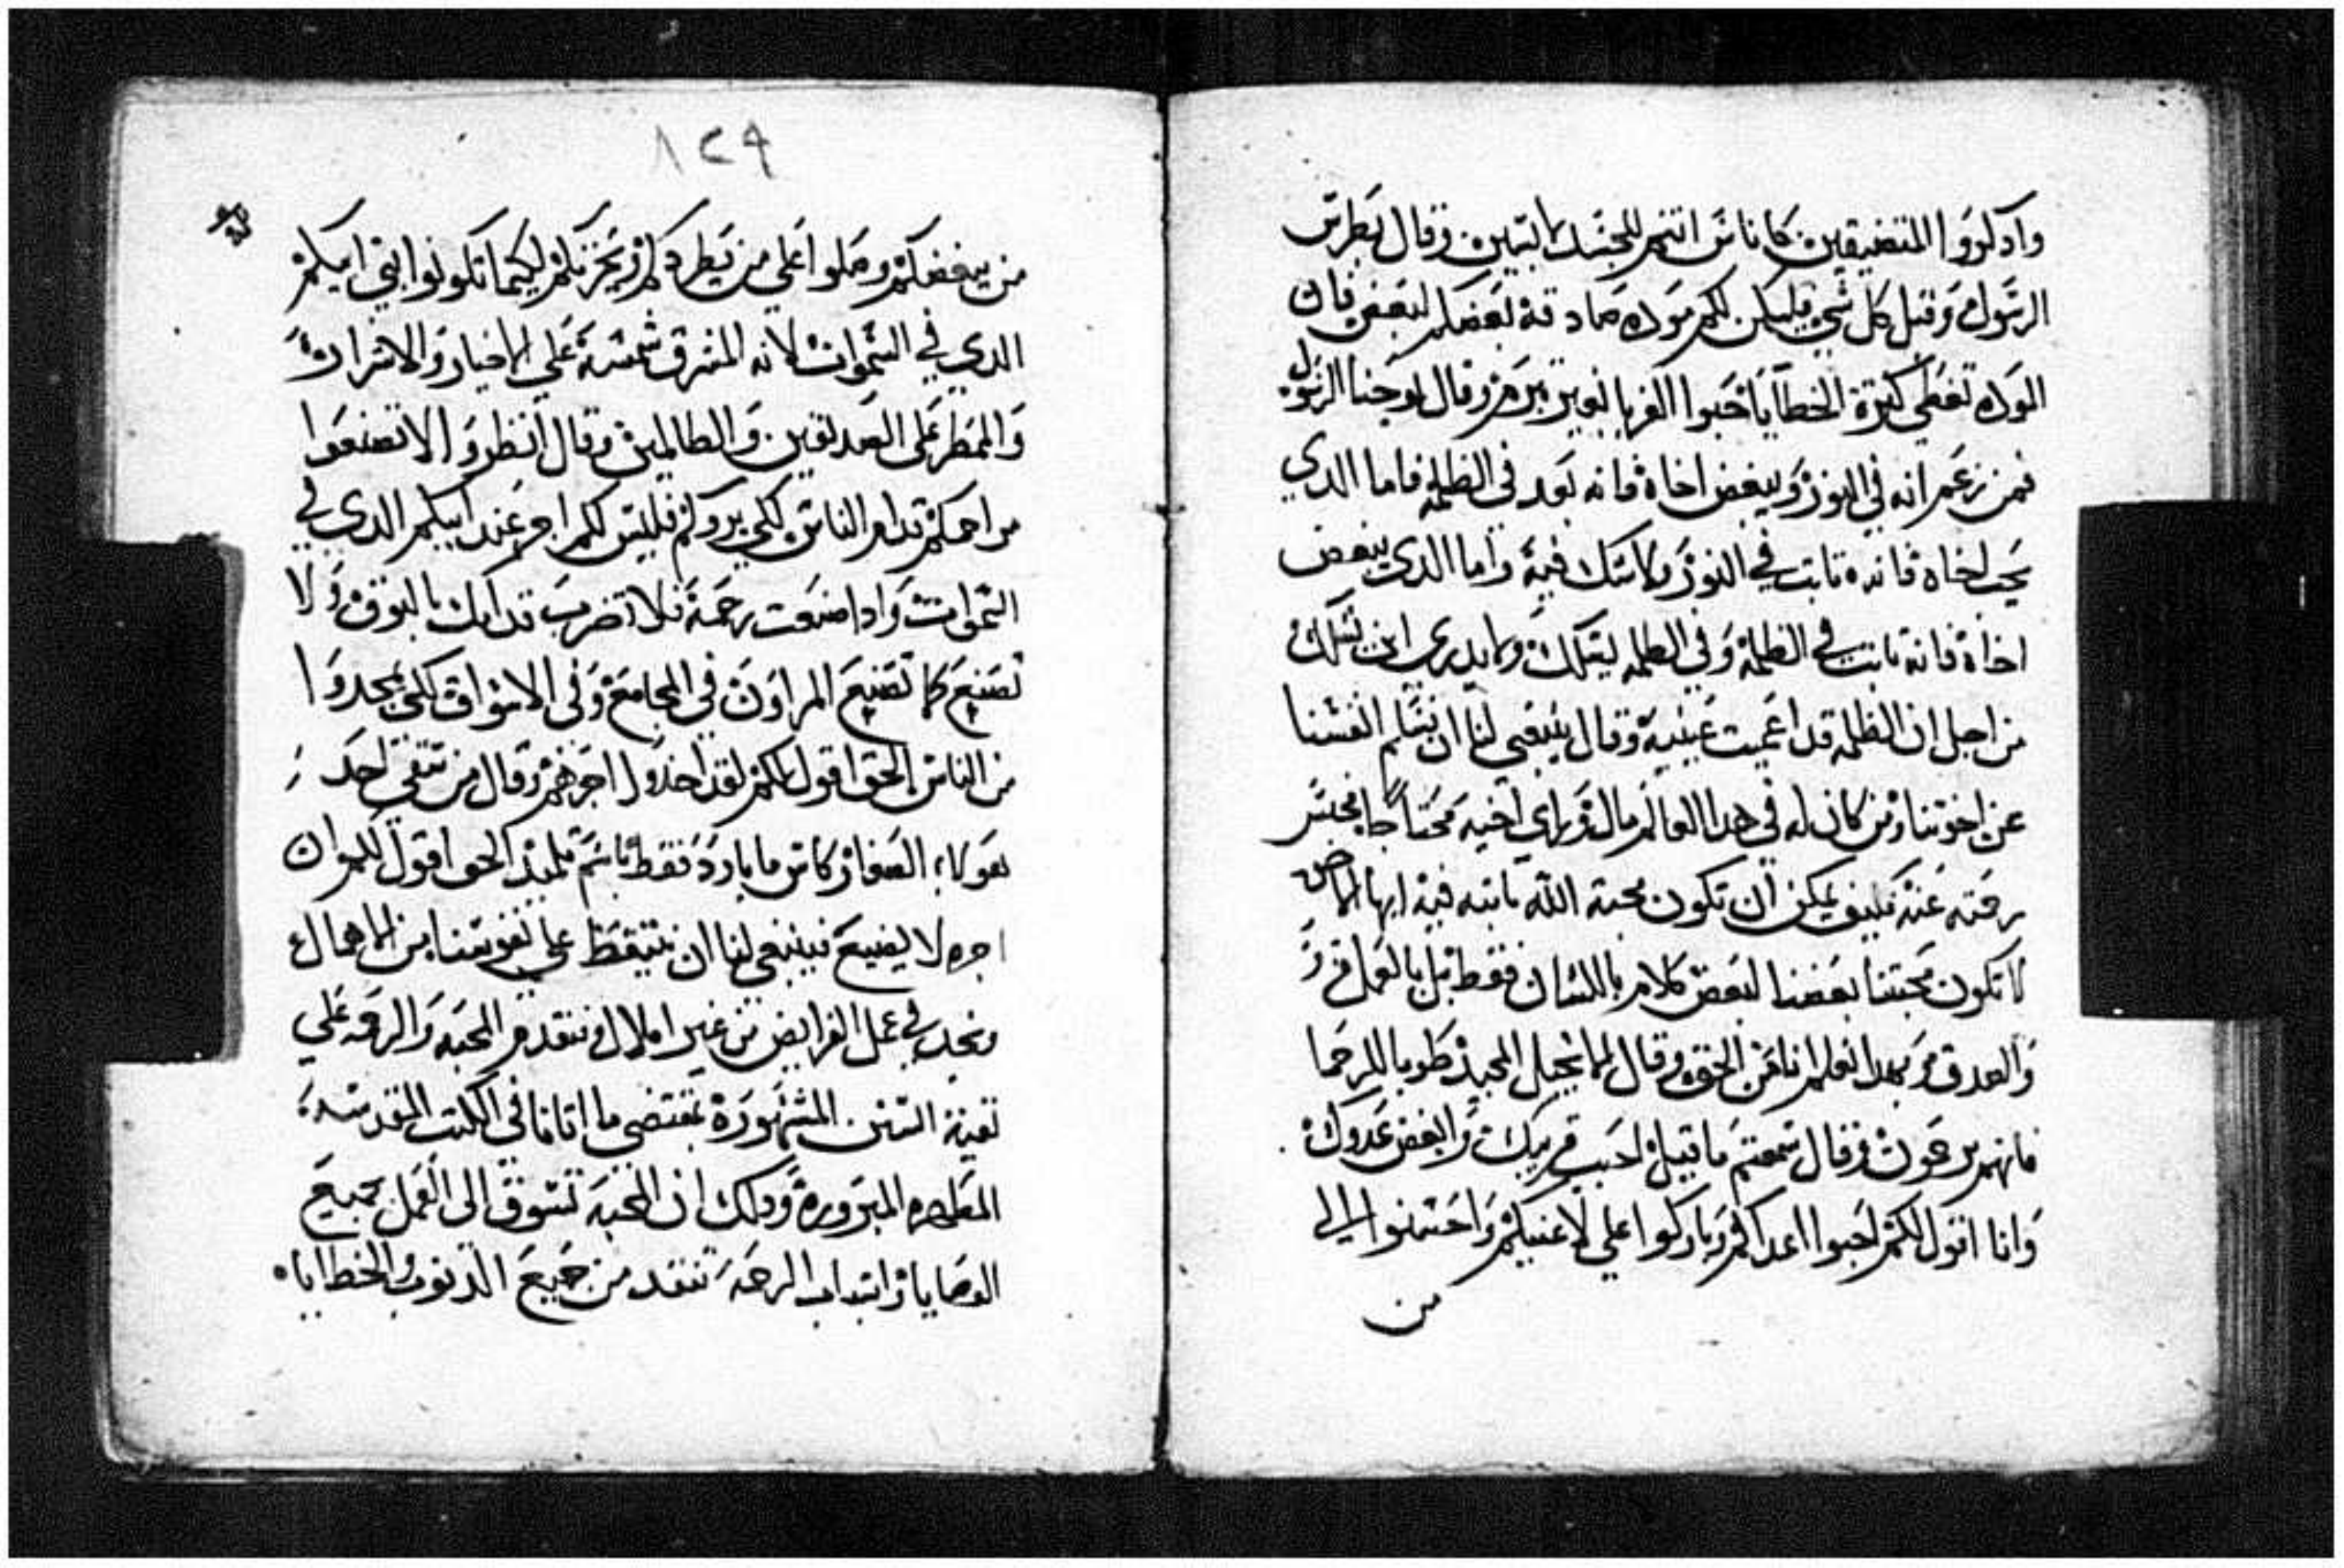 وادكروا المتضيقين كاناس انتم للجسد لابسين وقال بطرس
الرسول وقبل كل شي فليكن لكم موده صادقة بعضكم لبعض فان
الوده تغطي كترة الخطايا حبوا الغربا بغير تبرم وقال يوحنا الرسول
فمن زعم انه في النور ويبغض اخاه فانه بعد في الظلمة فاما الدي
يحب اخاه فانه تابت في النور ولا شك فيه واما الدي يبغض
اخاه فانه تابت في الظلمة وفي الظلمه يسلك ولا يدري اين يسلك
من اجل ان الظلمه قد اعميت عينيه وقال ينبغي لنا ان نسلم انفسنا
عن اخوتنا ومن كان له في هدا العالم مال وراى اخيه محتاجا فحبس
رحمته عنه فكيف يمكن ان تكون محبة الله تابته فيه ايها
لا تكون محبتنا بعضنا لبعض كلام باللسان فقط بل بالعمل و
والصدق وبهدا نعلم اننا من الحق وقال الانجيل المجيد طوبا للرحما
فانهم يرحمون وقال سمعتم ما قيل احب قريبك وابغض عدوك
وانا اقول لكم احبوا اعداكم وباركوا علي لاعنيكم واحسنوا الي
من
١٢٩
من يبغضكم وصلوا علي من يطردكم ويحزنكم ليكيما تكونوا بني ابيكم
الدي في السموات لانه المشرق شمسه علي الاخيار والاشرار
والممطر على الصديقين والظالمين وقال انظروا الا تصنعوا
مراحمكم قدام الناس لكي يروكم فليس لكم اجر عند ابيكم الدي في
السموات وادا صنعت رحمة فلا تضرب قدامك بالبوق ولا
تصنع كما تصنع المراون في المجامع وفي الاسواق لكي يمجدوا
من الناس الحق اقول لكم لقد اخدوا اجرهم وقال من سقي احد
هولاء الصغار كاس ما بارد فقط باسم تلميد الحق اقول لكم ان
اجره لا يضيع فينبغي لنا ان نتيقظ علي نفوسنا من الاهمال
ونجد في عمل الفرايض من غير املال ونتقدم المحبه والرحمه علي
تقية السنن المشهورة بمقتضى ما اتانا في الكتب المقدسه
المطهره المبروره ودلك ان المحبه تسوق الى العمل بجميع
الوصايا وابتداب الرحمه تنقد من جميع الدنوب والخطايا